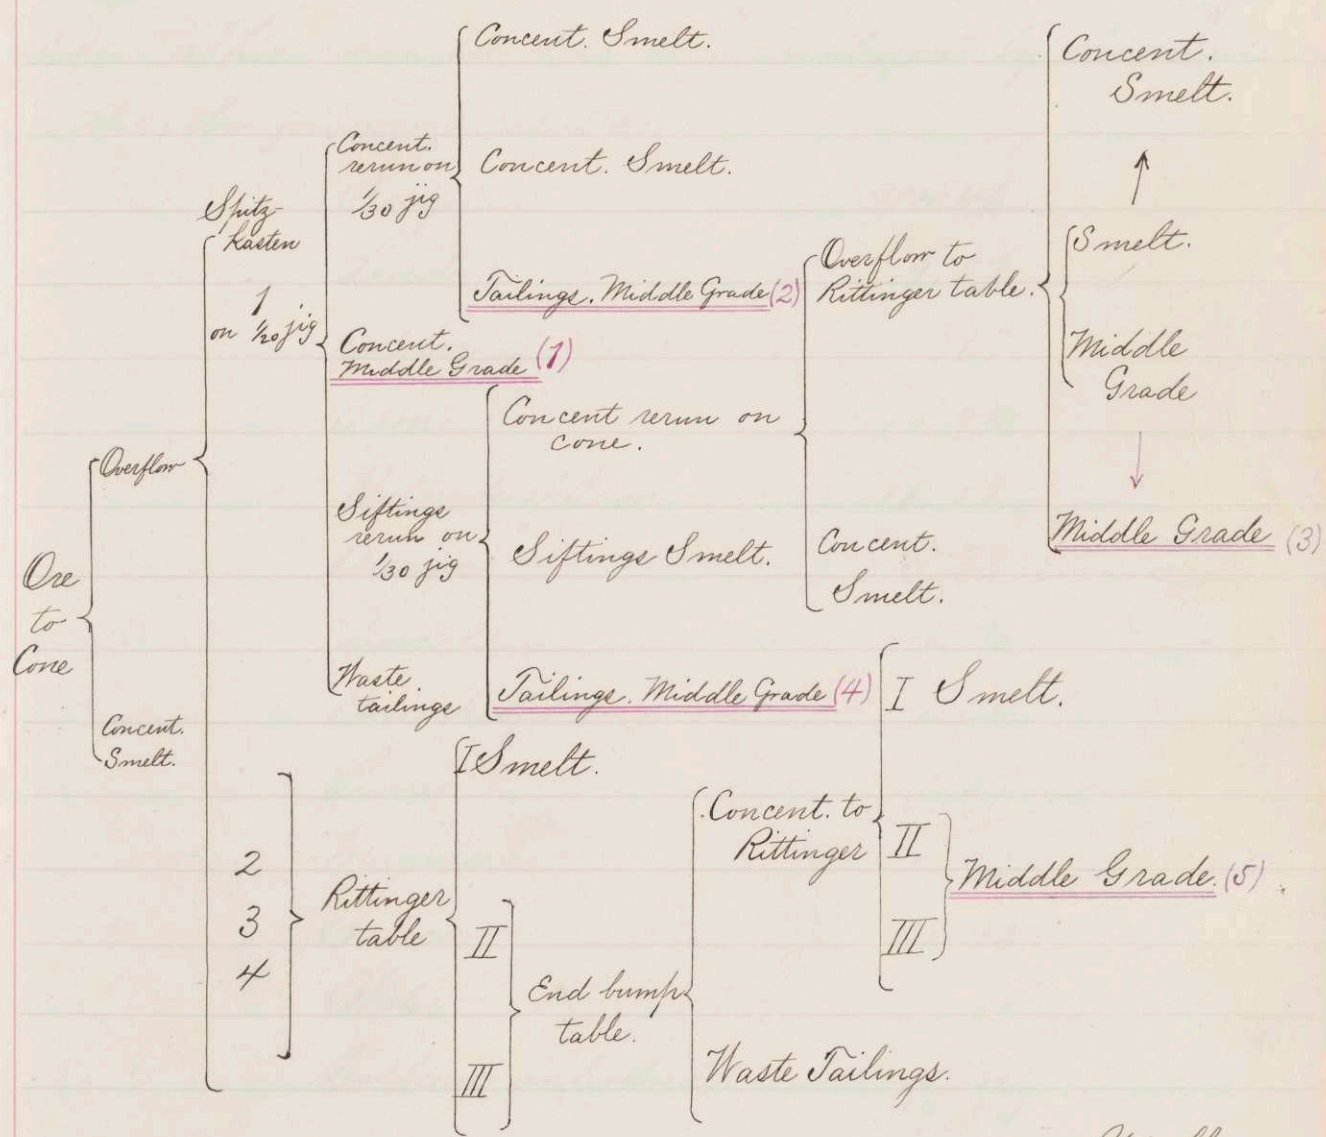 Ore
to
Cone
Overflow
Concent.
Smelt.
Spitz-
kasten
1
on 1/20 jig
2
3
4
Concent.
rerun on
1/30 jig
Concent.
Middle Grade (1)
Siftings
rerun on
1/30 jig
Waste
tailings
Concent. Smelt.
Concent. Smelt.
Tailings. Middle Grade (2)
Concent rerun on
cone.
Siftings Smelt.
Tailings. Middle Grade (4)
Overflow to
Rittinger table.
Concent.
Smelt.
Concent.
Smelt.
Smelt.
Middle
Grade
Middle Grade (3)
Rittinger
table
I Smelt.
II
III
End bump
table.
Concent. to
Rittinger
Waste Tailings.
I Smelt.
II
III
Middle Grade. (5)